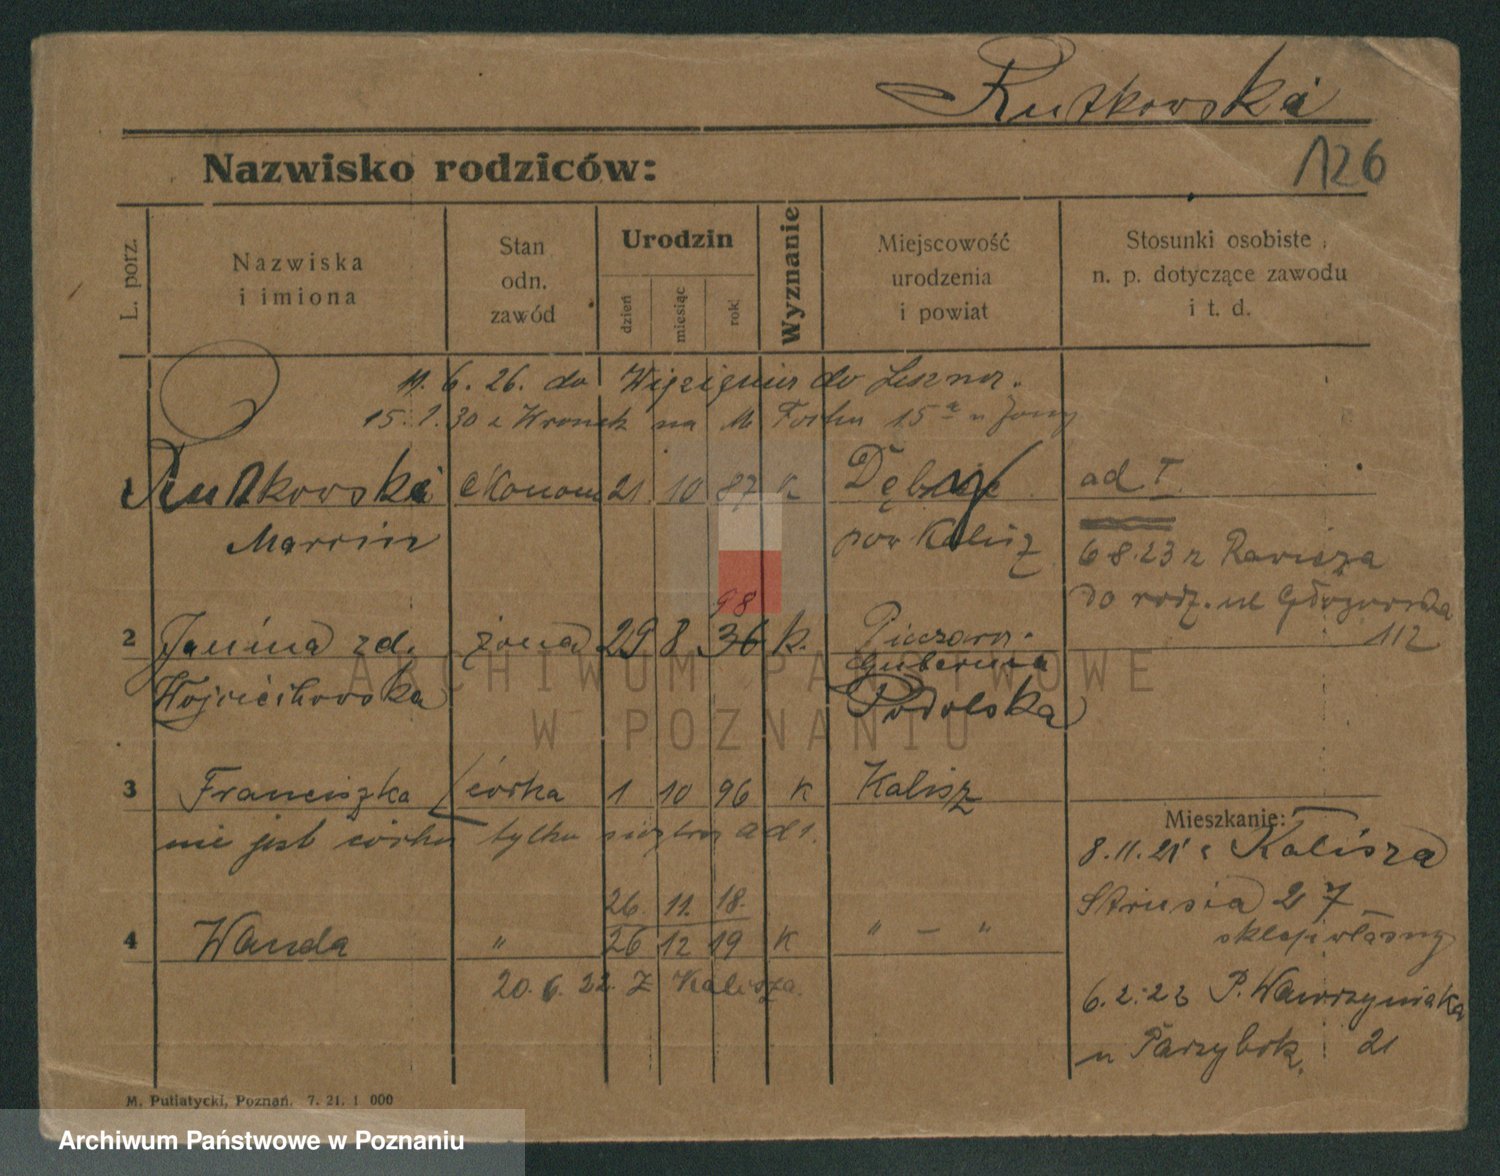 Rutkowski
126
Nazwisko rodziców:
L. porz.
Nazwiska
i imiona
Stan
odn.
zawód
Urodzin
dzień
miesiąc
rok
Wyznanie
Miejscowość
urodzenia
i powiat
Stosunki osobiste
n. p. dotyczące zawodu
i t. d.
11. 6. 26. do Więzienia do Leszna.
15. 30 z Wronek na 15 u żony
Rutkowski ekonom 21 10 87 k
Marcin pow Kalisz
ad I.
6.8.23 z Rawicza
do rodz. ul Głogowska
112
98
2 Janina zd. żona 29 8. 36 k.
Wojciechowska
Gubernia
Podolska
3 Franciszka córka 1 10 96 k Kalisz
nie jest córką tylko siostrą ad 1.
26. 11. 18.
4 Wanda " 26 12 19 k " — "
20. 6. 22. Z Kalisza.
Mieszkanie:
8.11.21 z Kalisza
Strusia 2 7
sklep własny
6.2.23 P. Wawrzyniaka
u 21
M. Putiatycki, Poznań. 7. 21. 1 000
ARCHIWUM PAŃSTWOWE
W POZNANIU
Archiwum Państwowe w Poznaniu